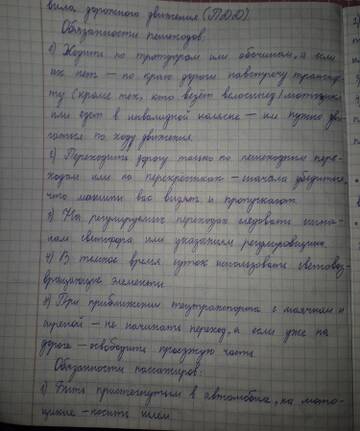 вила дорожного движения (ПДД).
Обязанности пешеходов:
1) Ходить по тротуарам или обочинам, а если
их нет — по краю дороги навстречу транспор-
ту (кроме тех, кто везёт велосипед/мотоцикл
или едет в инвалидной коляске — им нужно дви-
гаться по ходу движения.
2) Переходить дорогу только по пешеходным пере-
ходам или по перекрёсткам — сначала убедиться,
что машины вас видят и пропускают.
3) На регулируемых переходах следовать сигна-
лам светофора или указаниям регулировщика.
4) В тёмное время суток использовать световоз-
вращающие элементы.
5) При приближении спецтранспорта с маячком и
сиреной — не начинать переход, а если уже на
дороге — освободить проезжую часть.
Обязанности пассажиров:
1) Быть пристёгнутым в автомобиле, на мото-
цикле — носить шлем.